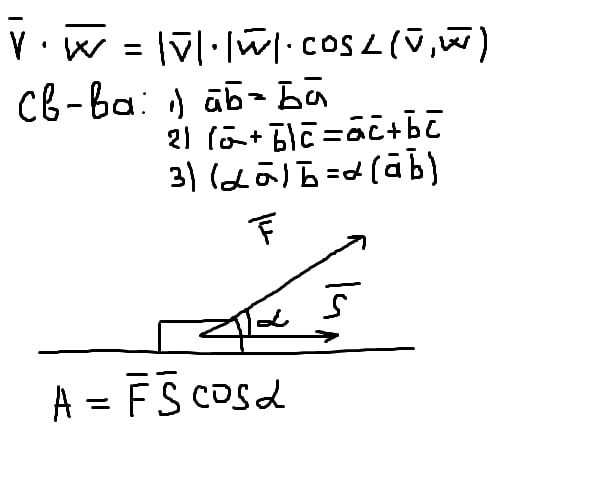 v̄ · w̄ = |v̄|·|w̄|· cos∠(v̄,w̄)
Св-ва: 1) āb̄ = b̄ā
2) (ā+b̄)c̄ = āc̄+b̄c̄
3) (αā)b̄ = α(āb̄)
F̄
S̄
α
A = F̄ S̄ cosα